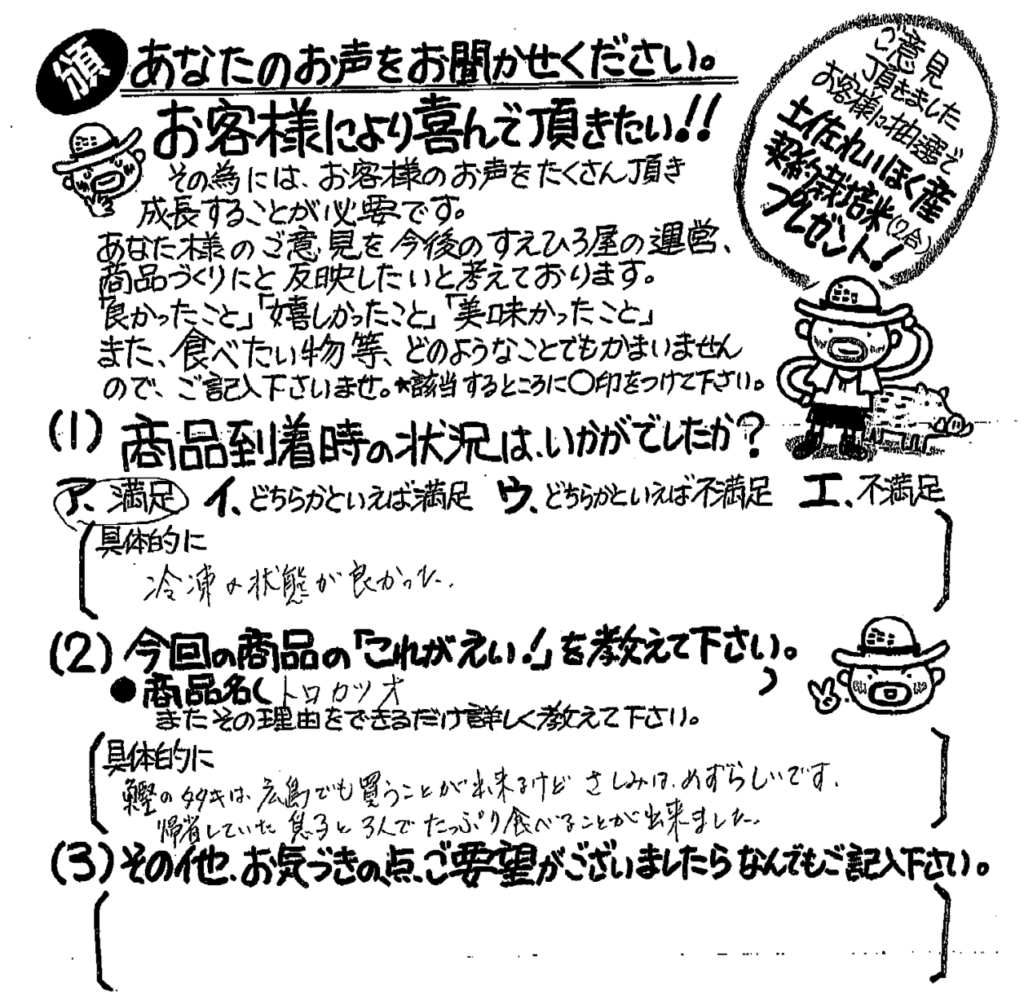 頒
あなたのお声をお聞かせください。
お客様により喜んで頂きたい!!
その為には、お客様のお声をたくさん頂き
成長することが必要です。
あなた様のご意見を今後のすえひろ屋の運営、
商品づくりにと反映したいと考えております。
「良かったこと」「嬉しかったこと」「美味かったこと」
また、食べたい物等、どのようなことでもかまいません
ので、ご記入下さいませ。*該当するところに○印をつけて下さい。
ご意見
頂きました
お客様に抽選で
土佐れいほく産
契約栽培米(2合)
プレゼント!
(1)商品到着時の状況は、いかがでしたか?
ア、満足 イ、どちらかといえば満足 ウ、どちらかといえば不満足 エ、不満足
具体的に
冷凍の状態が良かった.
(2)今回の商品の「これがえい!」を教えて下さい。
●商品名(トロカツオ)
またその理由をできるだけ詳しく教えて下さい。
具体的に
鰹のタタキは、広島でも買うことが出来るけど さしみは、めずらしいです.
帰省していた息子と3人でたっぷり食べることが出来ました.
(3)その他、お気づきの点、ご要望がございましたらなんでもご記入下さい。